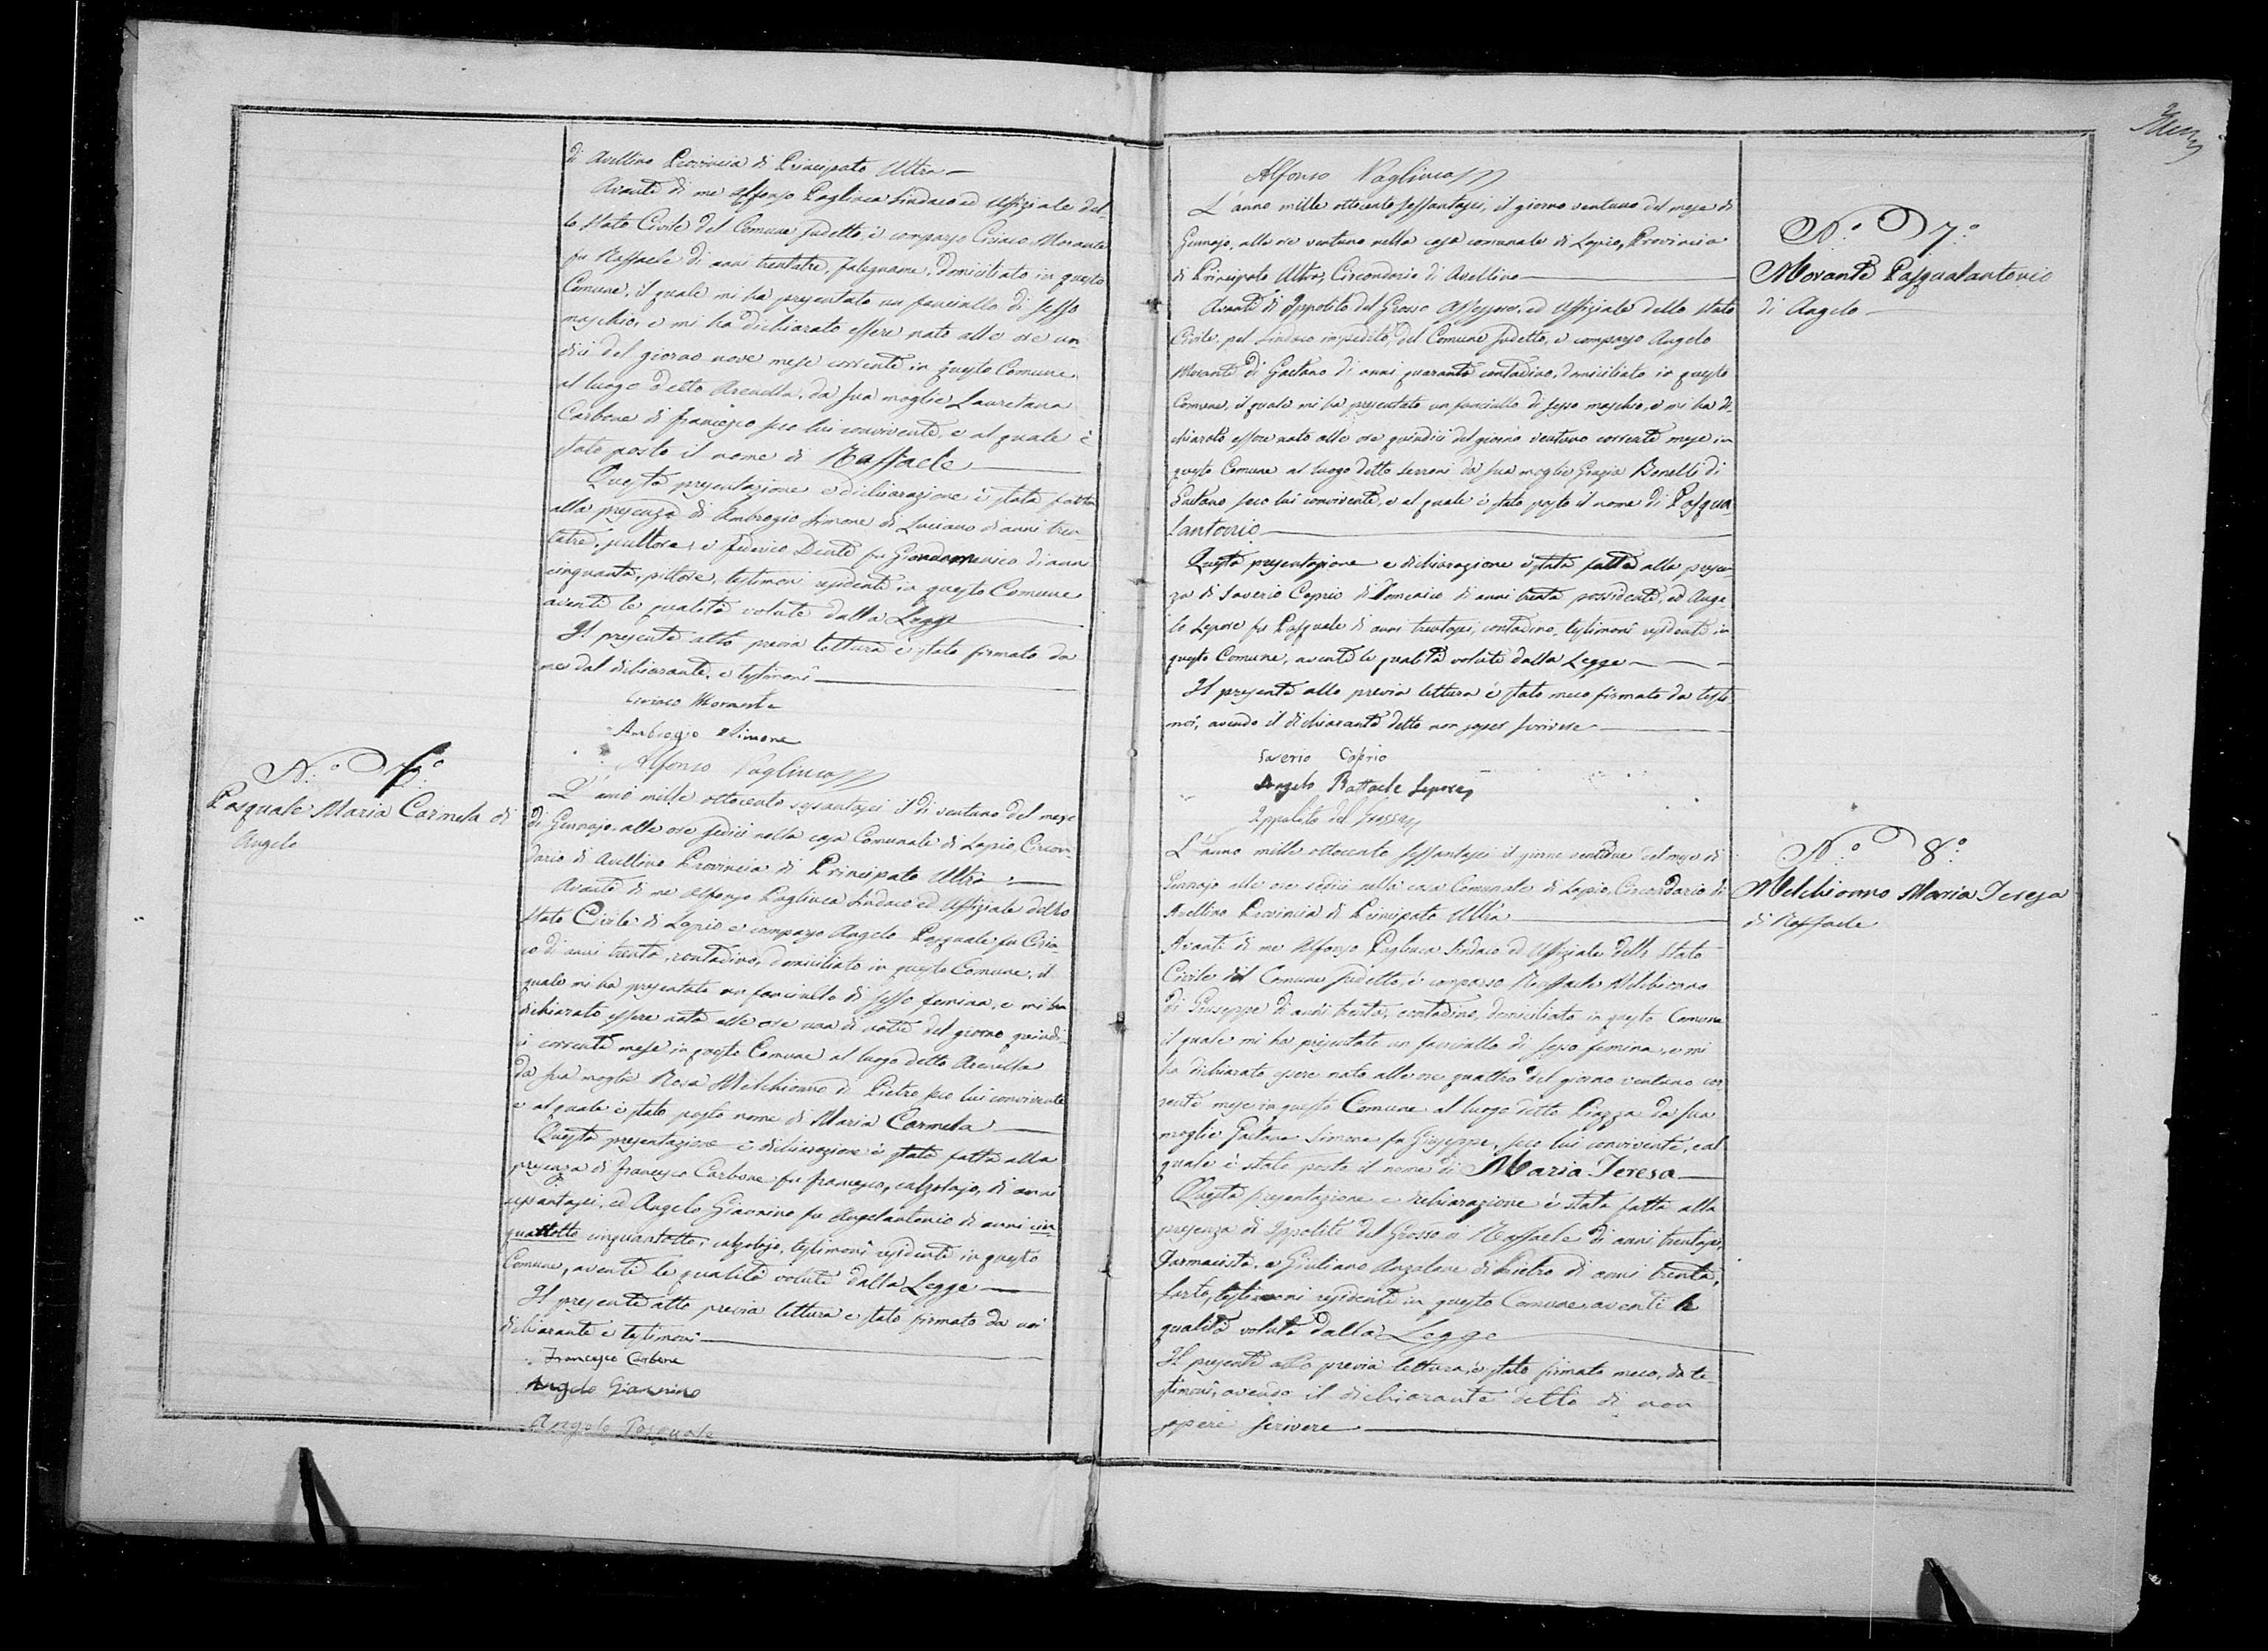 di Avellino Provincia di Principato Ultra
Avanti di me Alfonso Pagliuca Sindaco ed Uffiziale del-
lo Stato Civile del Comune sudetto, è comparso Ciriaco Morante
fu Raffaele di anni trentatre, falegname, domiciliato in questo
Comune, il quale mi ha presentato un fanciullo di sesso
maschio, e mi ha dichiarato essere nato alle ore un-
dici del giorno nove mese corrente in questo Comune
al luogo detto Arenella, da sua moglie Lauretana
Carbone di Francesco seco lui convivente, e al quale è
stato posto il nome di Raffaele
Questa presentazione e dichiarazione è stata fatta
alla presenza di Ambrogio Simone di Luciano di anni tren
tatre, scultore, e Federico Dente fu Giandomenico di anni
cinquanta, pittore, testimoni residenti in questo Comune
aventi le qualità volute dalla Legge
Il presente atto previa lettura è stato firmato da
me dal dichiarante, e testimoni
Ciriaco Morante
Ambrogio Simone
Alfonso Pagliuca
N.o 6.o
Pasquale Maria Carmela di
Angelo
L'anno mille ottocento sessantasei il dì ventuno del mese
di Gennajo alle ore sedici nella casa Comunale di Lapio, Circon-
dario di Avellino Provincia di Principato Ultra
Avanti di me Alfonso Pagliuca Sindaco ed Uffiziale dello
Stato Civile di Lapio è comparso Angelo Pasquale fu Ciria-
co di anni trenta, contadino, domiciliato in questo Comune, il
quale mi ha presentato un fanciullo di sesso femina, e mi ha
dichiarato essere nata alle ore una di notte del giorno quindi-
ci corrente mese in questo Comune al luogo detto Arenella
da sua moglie Rosa Melchionno di Pietro seco lui convivente
e al quale è stato posto nome di Maria Carmela
Questa presentazione e dichiarazione è stata fatta alla
presenza di Francesco Carbone fu Francesco, calzolajo, di anni
sessantasei, ed Angelo Giannino fu Angelantonio di anni cin
quattotto cinquantotto, calzolajo, testimoni residenti in questo
Comune, aventi le qualità volute dalla Legge
Il presente atto previa lettura è stato firmato da noi
dichiarante e testimoni
Francesco Carbone
Angelo Giannino
Angelo Pasquale
Alfonso Pagliuca
L'anno mille ottocento sessantasei, il giorno ventuno del mese di
Gennajo, alle ore ventuno nella casa comunale di Lapio, Provincia
di Principato Ultra, Circondario di Avellino
Avanti di Ippolito del Grosso Assessore, ed Uffiziale dello Stato
Civile, pel Sindaco impedito, del Comune sudetto, è comparso Angelo
Morante di Gaetano di anni quaranta contadino, domiciliato in questo
Comune, il quale mi ha presentato un fanciullo di sesso maschio, e mi ha di-
chiarato essere nato alle ore quindici del giorno ventuno corrente mese in
questo Comune al luogo detto Serroni da sua moglie Grazia Bonelli di
Gaetano seco lui convivente, e al quale è stato posto il nome di Pasqua-
lantonio
Questa presentazione e dichiarazione è stata fatta alla presen-
za di Saverio Caprio di Domenico di anni trenta possidente, ed Ange
lo Lepore fu Pasquale di anni trentasei, contadino, testimoni residenti in
questo Comune, aventi le qualità volute dalla Legge
Il presente atto previa lettura è stato meco firmato da testi-
moni, avendo il dichiarante detto non saper scrivere
Saverio Caprio
Angelo Raffaele Lepore
Ippolito del Grosso
N.o 7.o
Morante Pasqualantonio
di Angelo
L'anno mille ottocento sessantasei il giorno ventidue del mese di
Gennajo alle ore sedici nella casa Comunale di Lapio, Circondario di
Avellino Provincia di Principato Ultra
Avanti di me Alfonso Pagliuca Sindaco ed Uffiziale dello Stato
Civile del Comune sudetto, è comparso Raffaele Melchionno
di Giuseppe di anni trenta, contadino, domiciliato in questo Comune
il quale mi ha presentato un fanciullo di sesso femina, e mi
ha dichiarato essere nato alle ore quattro del giorno ventuno cor
rente mese in questo Comune al luogo detto Piazza da sua
moglie Gaetana Simone fu Giuseppe, seco lui convivente, e al
quale è stato posto il nome di Maria Teresa
Questa presentazione e dichiarazione è stata fatta alla
presenza di Ippolito del Grosso di Raffaele di anni trentasei,
Farmacista, e Giuliano Anzalone di Pietro di anni trenta,
Sarto, testimoni residenti in questo Comune aventi le
qualità volute dalla Legge
Il presente atto previa lettura, è stato firmato meco, da te-
stimoni, avendo il dichiarante detto di non
sapere scrivere
N.o 8.o
Melchionno Maria Teresa
di Raffaele